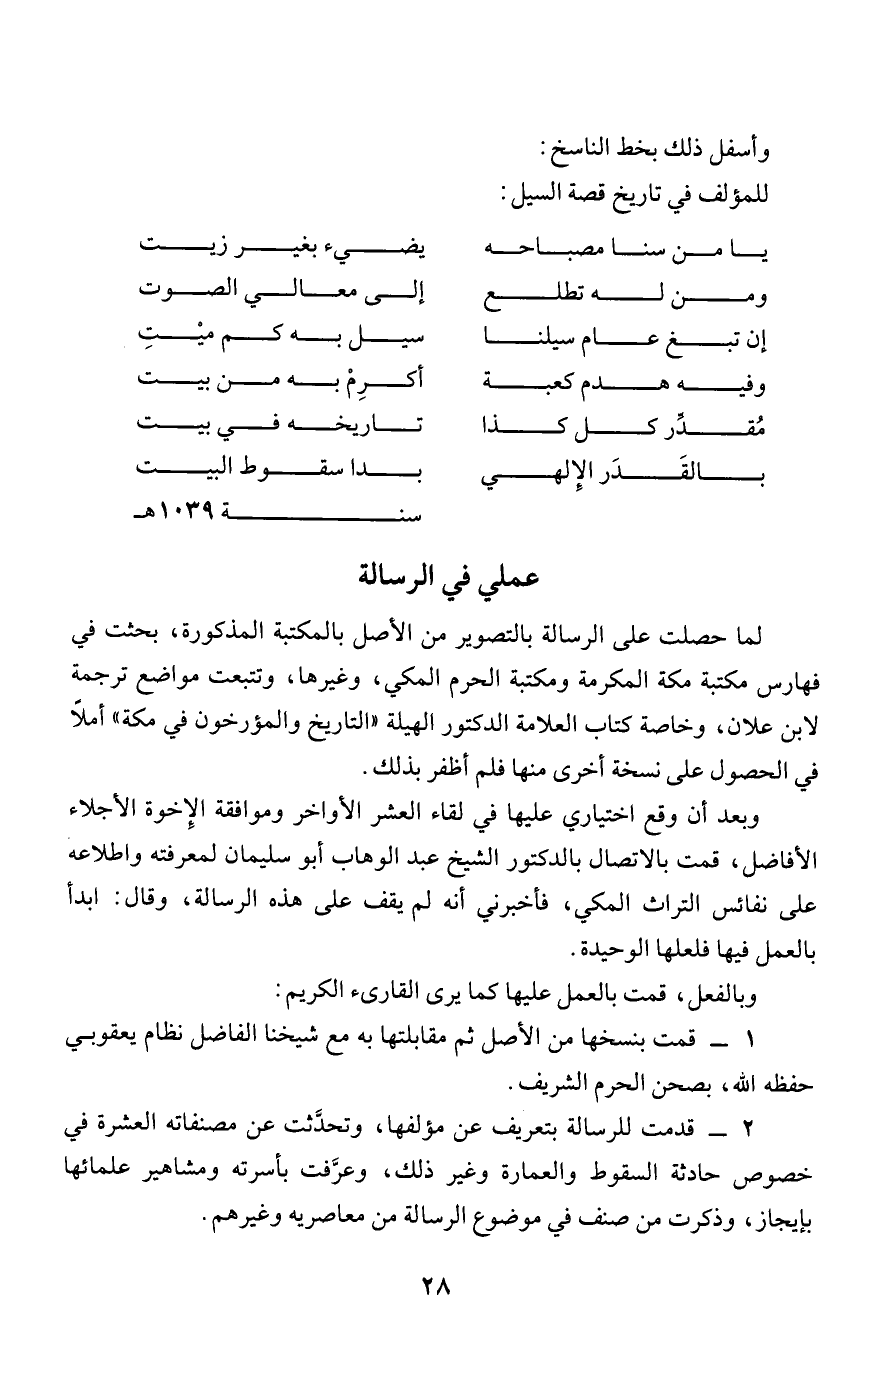 وأسفل ذلك بخط الناسخ:
للمؤلف في تاريخ قصة السيل:
يا من سنا مصباحه يضيء بغير زيت
ومن له تطلع إلى معالي الصوت
إن تبغ عام سيلنا سيل به كم ميْتِ
وفيه هدم كعبة أكرِمْ به من بيت
مُقدِّر كل كذا تاريخه في بيت
بالقَدَر الإلهي بدا سقوط البيت
سنة ١٠٣٩هـ
عملي في الرسالة
لما حصلت على الرسالة بالتصوير من الأصل بالمكتبة المذكورة، بحثت في
فهارس مكتبة مكة المكرمة ومكتبة الحرم المكي، وغيرها، وتتبعت مواضع ترجمة
لابن علان، وخاصة كتاب العلامة الدكتور الهيلة «التاريخ والمؤرخون في مكة» أملاً
في الحصول على نسخة أخرى منها فلم أظفر بذلك.
وبعد أن وقع اختياري عليها في لقاء العشر الأواخر وموافقة الإخوة الأجلاء
الأفاضل، قمت بالاتصال بالدكتور الشيخ عبد الوهاب أبو سليمان لمعرفته واطلاعه
على نفائس التراث المكي، فأخبرني أنه لم يقف على هذه الرسالة، وقال: ابدأ
بالعمل فيها فلعلها الوحيدة.
وبالفعل، قمت بالعمل عليها كما يرى القارىء الكريم:
١ ــ قمت بنسخها من الأصل ثم مقابلتها به مع شيخنا الفاضل نظام يعقوبي
حفظه الله، بصحن الحرم الشريف.
٢ ــ قدمت للرسالة بتعريف عن مؤلفها، وتحدَّثت عن مصنفاته العشرة في
خصوص حادثة السقوط والعمارة وغير ذلك، وعرَّفت بأسرته ومشاهير علمائها
بإيجاز، وذكرت من صنف في موضوع الرسالة من معاصريه وغيرهم.
٢٨